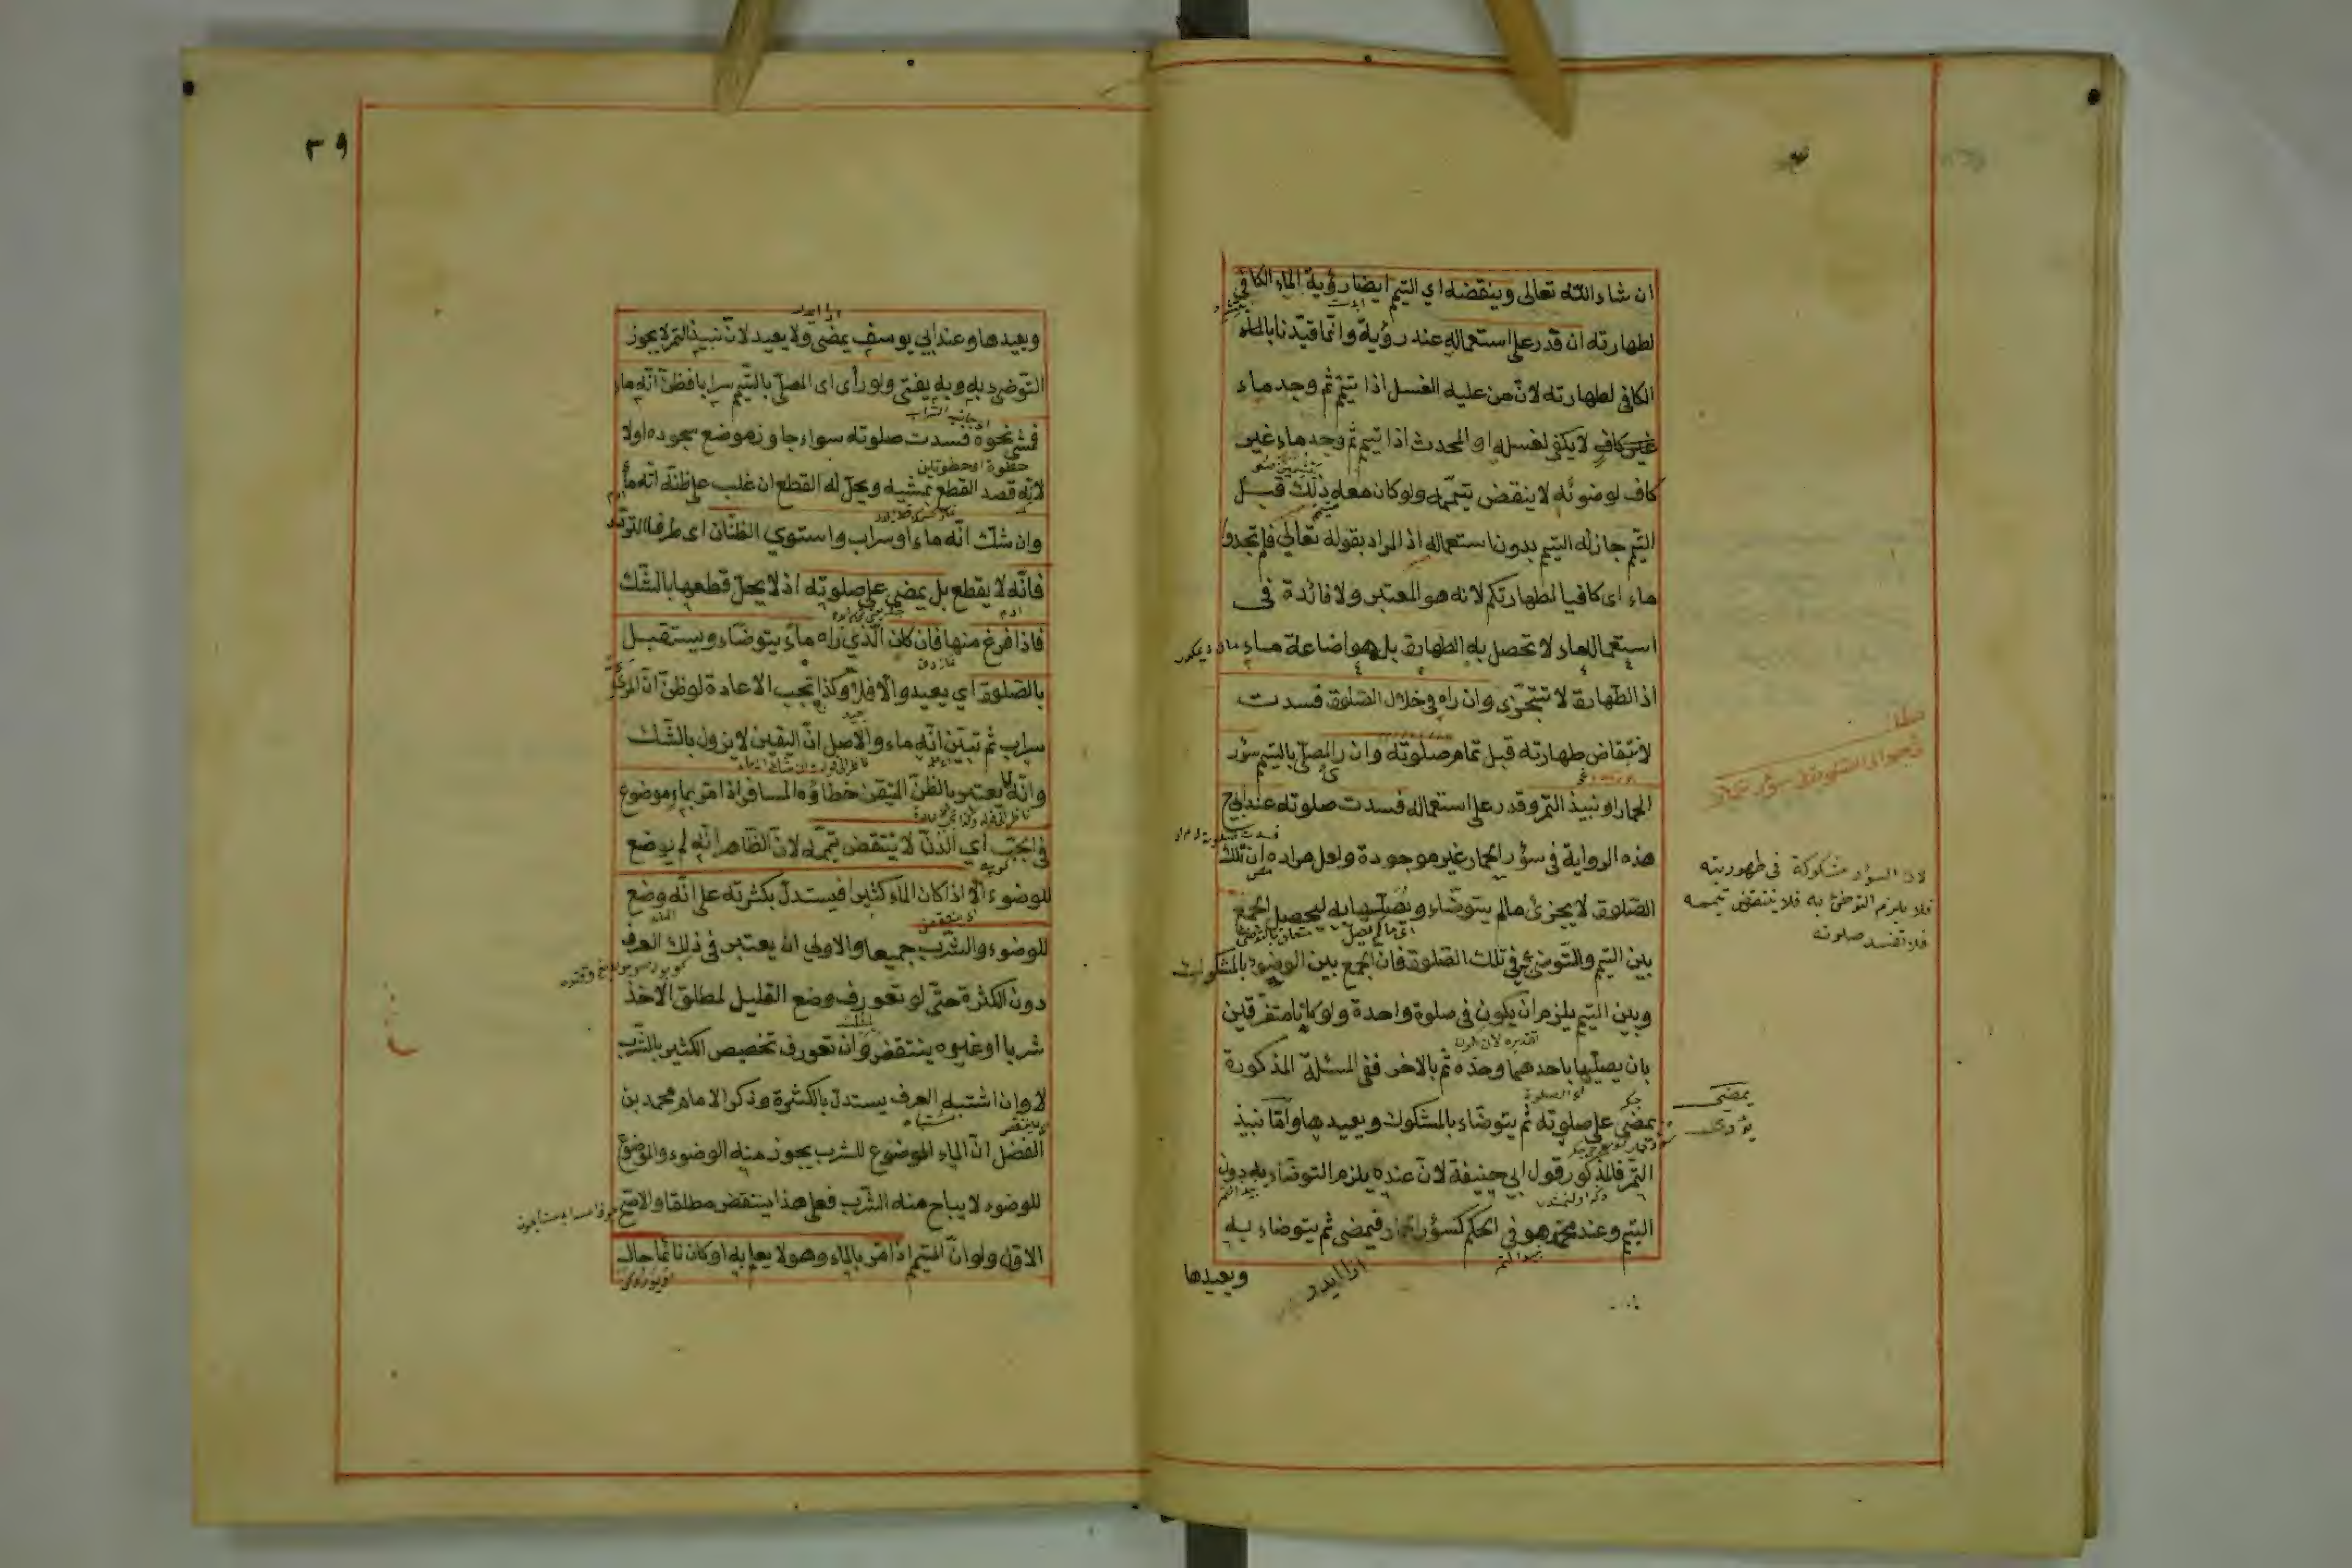 ان شاء الله تعالى وينقضه اي التيمم ايضا رؤية الماء الكافى
لطهارته ان قدر على استعماله عند رؤيته وانما قيدنا بالماء
الكافى لطهارته لان من عليه الغسل اذا تيمم ثم وجد ماء
غير كاف لا يكفى لغسله او المحدث اذا تيمم ثم وجد ماء غير
كاف لوضوئه لا ينقض تيممه ولو كان معه ذلك قبل
التيمم جاز له التيمم بدون استعماله اذ المراد بقوله تعالى فلم تجدوا
ماء اى كافيا لطهارتكم لانه هو المعتبر ولا فائدة فى
استعمال ماء لا تحصل به الطهارة بل هو اضاعة ماء
اذ الطهارة لا تتجزى وان راه فى خلال الصلوة فسدت
لانتقاض طهارته قبل تمام صلوته وان راى المصلى بالتيمم سؤر
الحمار او نبيذ التمر وقدر على استعماله فسدت صلوته عند ابى ح
هذه الرواية فى سؤر الحمار غير موجودة ولعل مراده ان تلك
الصلوة لا يجزئ مالم يتوضاء ويصليها به ليحصل الجمع
بين التيمم والتوضئ فى تلك الصلوة فان الجمع بين الوضوء بالمشكوك
وبين التيمم يلزم ان يكون فى صلوة واحدة ولو كانا متفرقين
بان يصليها باحدهما وحده ثم بالاخر ففى المسئلة المذكورة
يمضى على صلوته ثم يتوضاء بالمشكوك ويعيدها واما نبيذ
التمر فالمذكور قول ابي حنيفة لان عنده يلزم التوضاء به دون
التيمم وعند محمد هو فى الحكم كسؤر الحمار فيمضى ثم يتوضاء به
ويعيدها
لان السؤر مشكوكة فى طهوريته
فلا يلزم التوضئ به فلا ينتقض تيممه
فلا تفسد صلوته
يمضى
يؤدى
٣٩
ويعيدها وعند ابي يوسف يمضى ولا يعيد لان نبيذ التمر لا يجوز
التوضى به وبه يفتى ولو رأى اى المصلى بالتيمم سرابا فظن انه ماء
فمشى نحوه فسدت صلوته سواء جاوز موضع سجوده اولا
لانه قصد القطع بمشيه ويحل له القطع ان غلب على ظنه انه ماء
وان شك انه ماء او سراب واستوي الظنان اى طرفا التردد
فانه لا يقطع بل يمضى على صلوته اذ لا يحل قطعها بالشك
فاذا فرغ منها فان كان الذي راه ماء يتوضاء ويستقبل
بالصلوة اي يعيد والا فلا وكذا تجب الاعادة لو ظن ان المرئى
سراب ثم تبين انه ماء والاصل ان اليقين لا يزول بالشك
وانه لا يعتبر بالظن المتيقن خطاؤه المسافر اذا مر بماء موضوع
فى الحب اي الدن لا ينتقض تيممه لان الظاهر انه لم يوضع
للوضوء الا اذا كان الماء كثيرا فيستدل بكثرته على انه وضع
للوضوء والشرب جميعا والاولي ان يعتبر فى ذلك العرف
دون الكثرة حتى لو تعورف وضع القليل لمطلق الاخذ
شربا او غيره ينتقض وان تعورف تخصيص الكثير بالشرب
لا وان اشتبه العرف يستدل بالكثرة وذكر الامام محمد بن
الفضل ان الماء الموضوع للشرب يجوز منه الوضوء والموضوع
للوضوء لا يباح منه الشرب فعلى هذا ينتقض مطلقا والاصح
الاول ولو ان المتيمم اذا مر بالماء وهو لا يعلم به او كان نائما حال